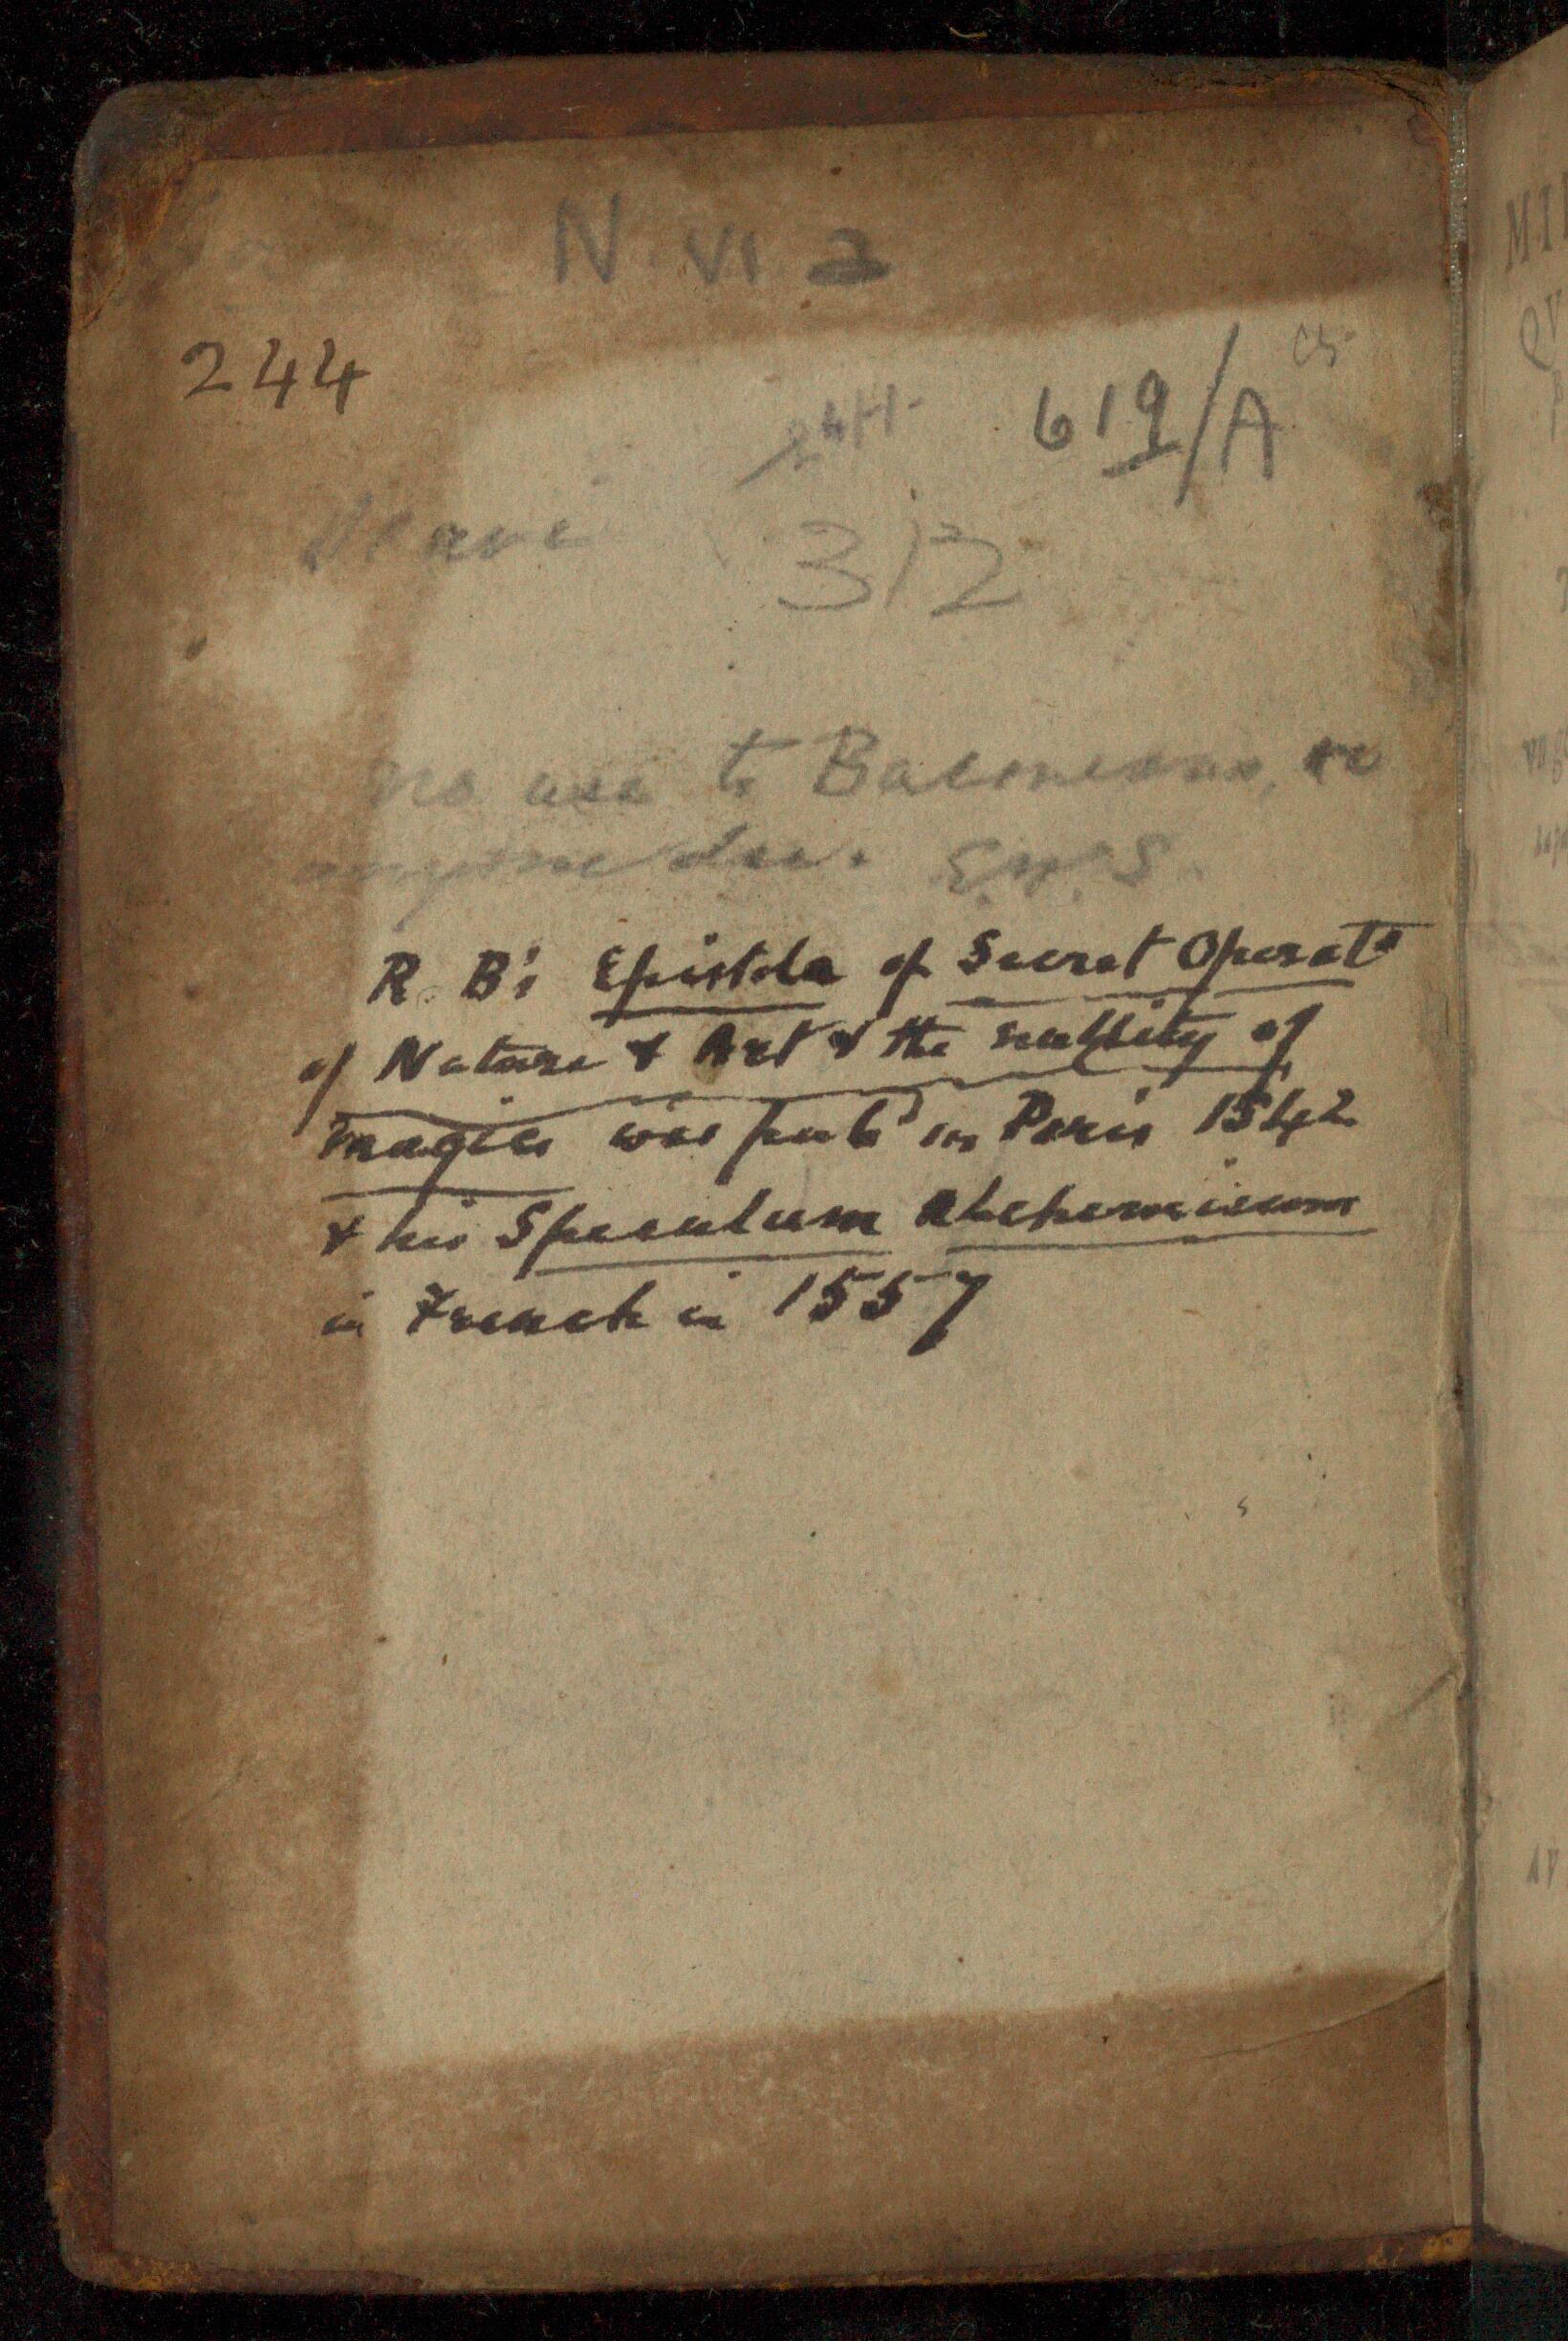 N. VI 2
244
619/A
312
no use to Baconeans, or
anyone else. E.W.S.
R. B's Epistola of Secret Operats
of Nature & Art & the nullity of
magic was pubd in Paris 1542
& his Speculum Alchemicum
in French in 1557
MI
QV
AV